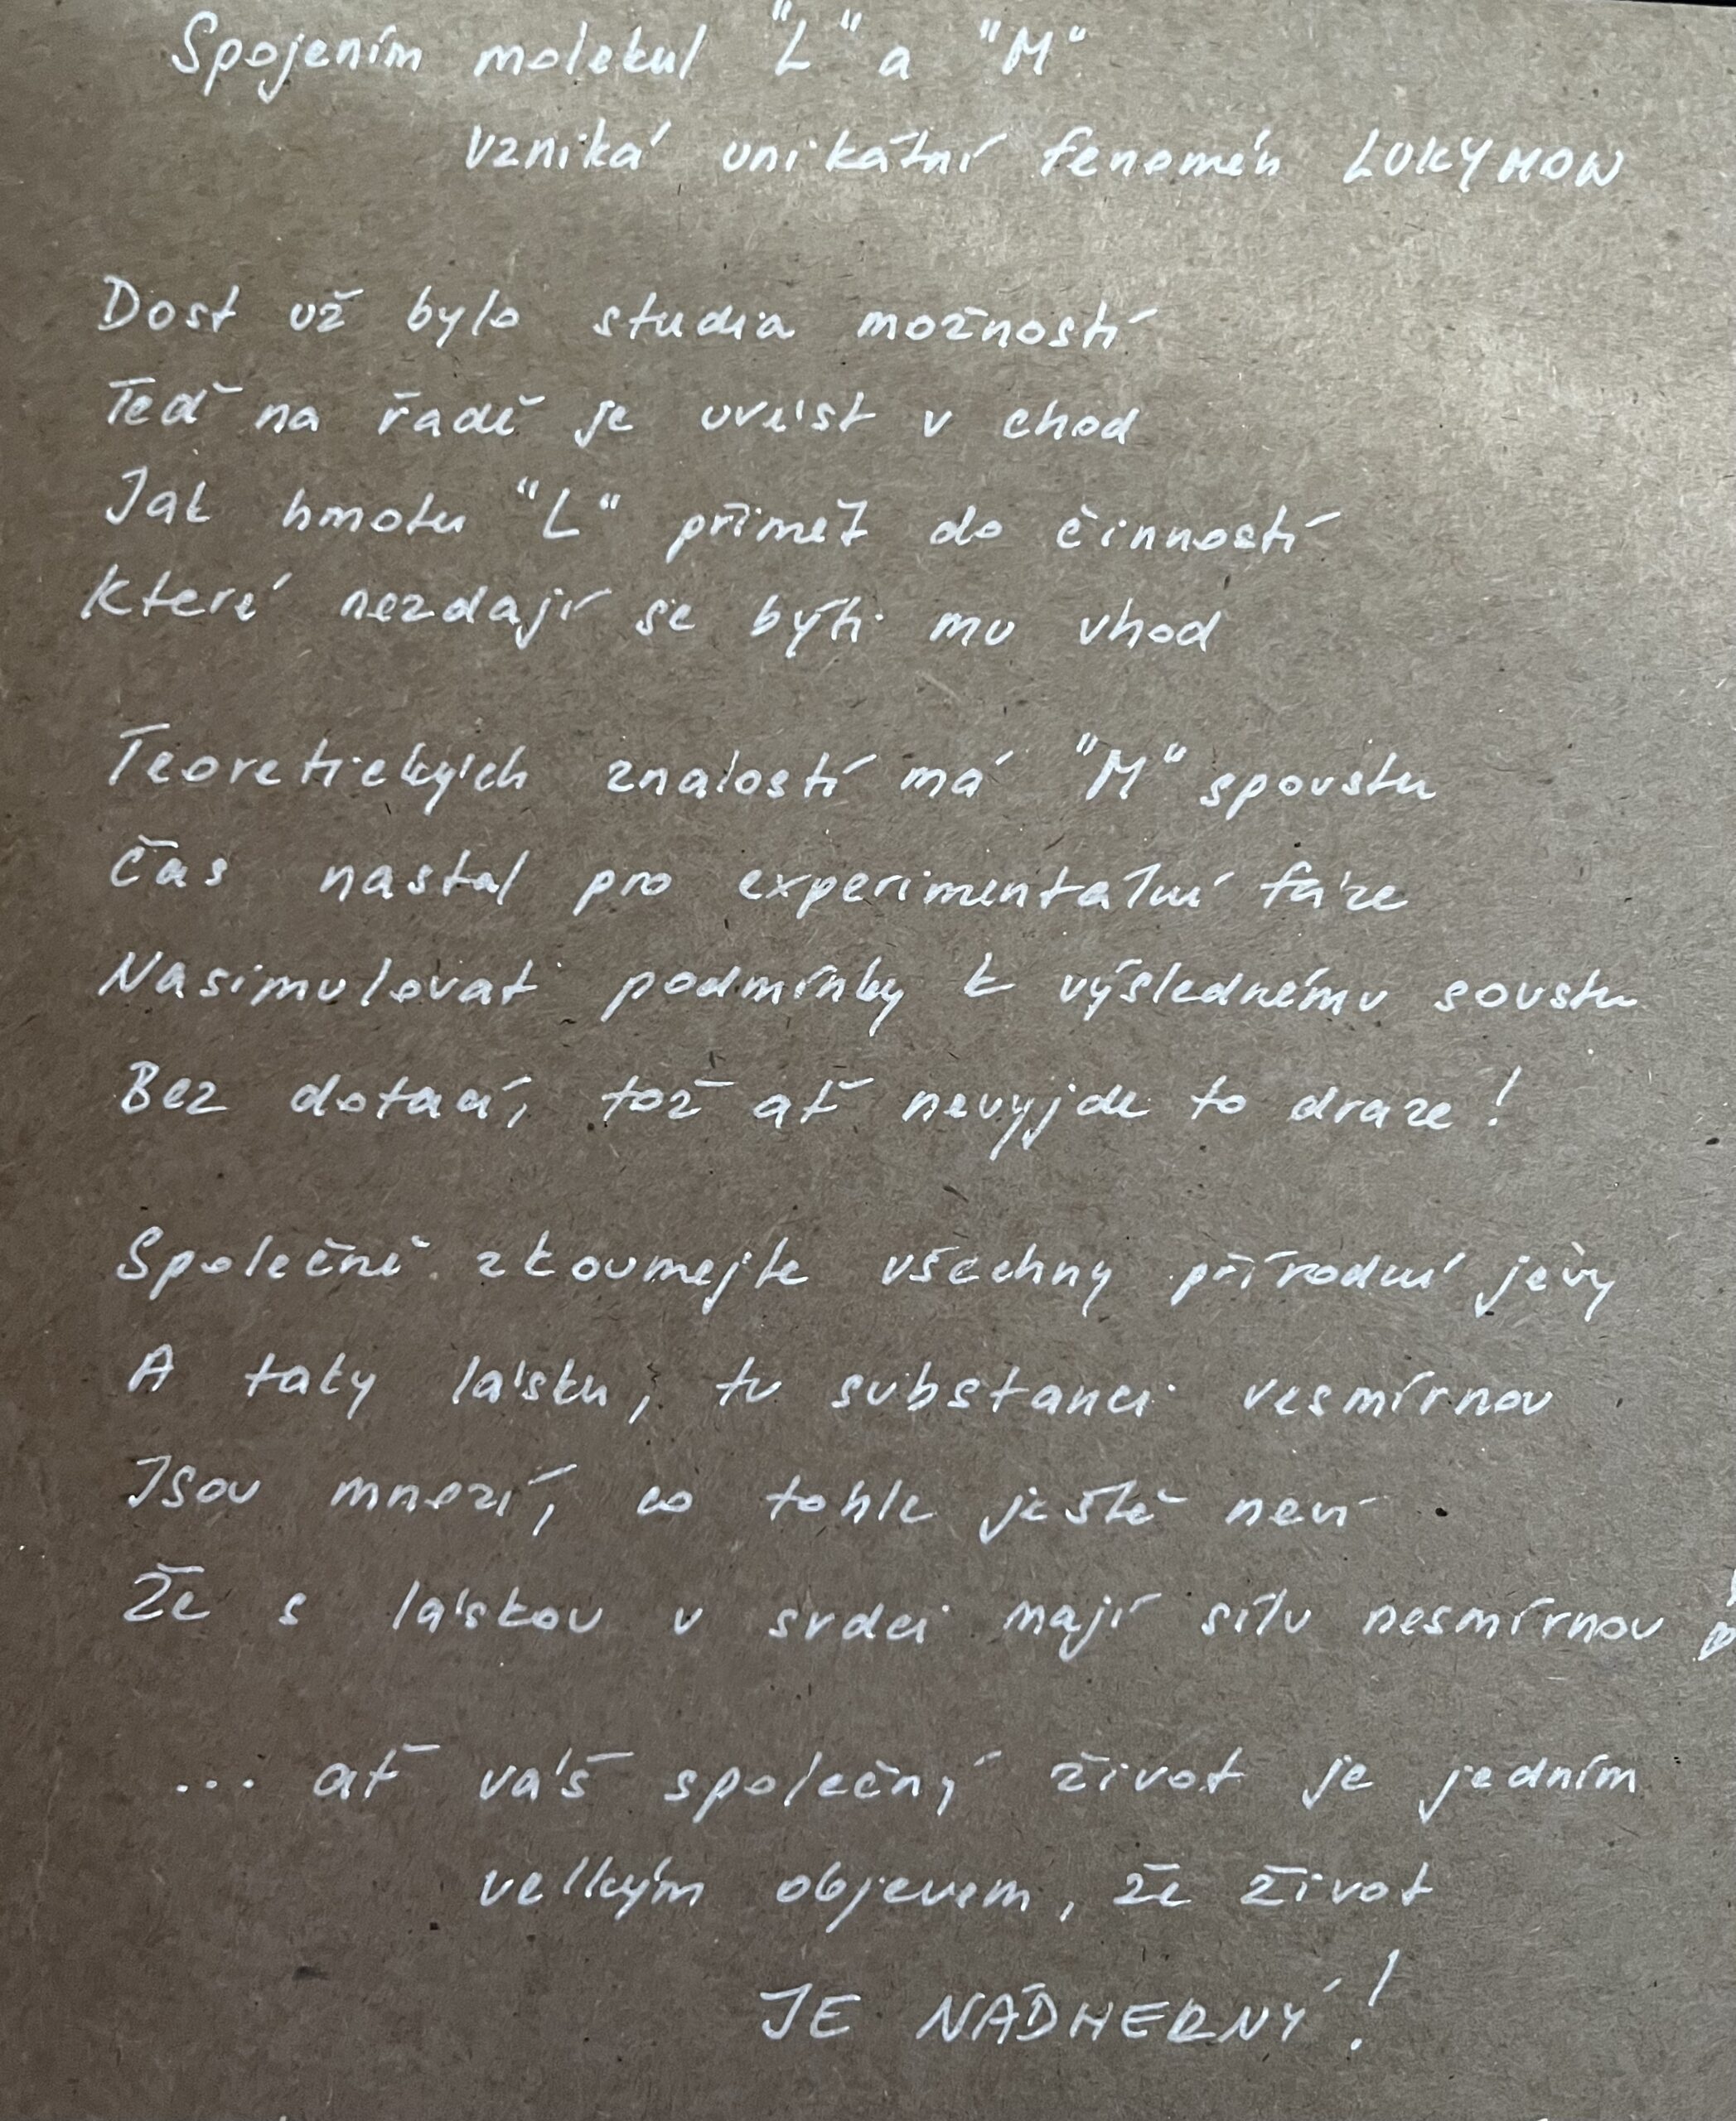 Spojením molekul "L" a "M"
vzniká unikátní fenomén LUKYMON
Dost už bylo studia možností
Teď na řadě je uvést v chod
Jak hmotu "L" přimět do činností
Které nezdají se býti mu vhod
Teoretických znalostí má "M" spoustu
Čas nastal pro experimentální fáze
Nasimulovat podmínky k výslednému soustu
Bez dotací, tož ať nevyjde to draze!
Společně zkoumejte všechny přírodní jevy
A taky lásku, tu substanci vesmírnou
Jsou mnozí, co tohle ještě neví
Že s láskou v srdci mají sílu nesmírnou
... ať váš společný život je jedním
velkým objevem, že život
JE NÁDHERNÝ!